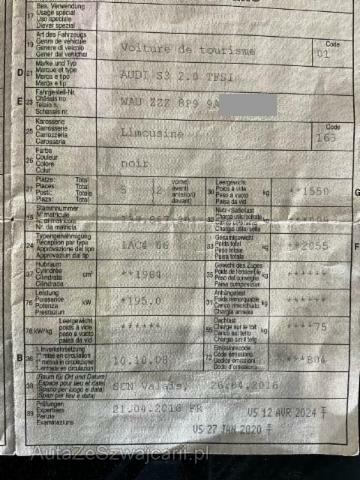 Bes. Verwendung
Usage spécial
Uso speciale
Diever spezial
Art des Fahrzeugs
Genre de véhicule
Genere del veicolo
Gener da vehichel
19
Voiture de tourisme
Code
01
D
21
Marke und Typ
Marque et type
Marca e tipo
Marca e tip
AUDI S3 2.0 TFSI
E
23
Fahrgestell-Nr.
Châssis no
Telaio n.
Schassis nr.
WAU ZZZ 8P9 9A
25
Karosserie
Carrosserie
Carrozzeria
Carrossaria
Limousine
Code
26
Farbe
Couleur
Colore
Colur
noir
27
Plätze: Total
Places: Total
Posti: Totale
Plazs: Total
5
2
vorne/
avant/
anteriori/
davant/
30
Leergewicht
Poids à vide
Peso a vuoto
Paisa da vid
kg
**1550
G
18
Stammnummer
N° matricule
Nr. da matricla
kg
24
Typengenehmigung
Réception par type
Approvazione del tipo
Approvaziun dal tip
1AC4 66
33
Gesamtgewicht
Poids total
Peso totale
Paisa totala
kg
**2055
F
37
Hubraum
Cylindrée
Cilindrata
Cilindrada
cm³
**1984
35
Gewicht des Zuges
Poids de l'ensemble
Peso del convoglio
Paisa cumplessiva
kg
76
Leistung
Puissance
Potenza
Prestaziun
kW
*195.0
31
Anhängelast
Poids remorquable
Carico rimorchiabile
Chargia annexa
kg
78
kW/kg
Leergewicht
poids à vide
peso a vuoto
paisa da vid
******
55
Dachlast
Charge sur le toit
Carico sul tetto
Chargia sin il tetg
kg
75
B
36
1. Inverkehrsetzung
1re mise en circulation
1a messa in circolazione
1. entrada en circulaziun
10.10.08
72
Emissionscode
Code émissions
Codice emissioni
Code d'emissiuns
B04
38
(Raum für Ort und Datum)
(Espace pour lieu et date)
(Spazio per luogo e data)
(Spazi per lieu e data)
SCN Valais, 26.04.2016
39
Prüfungen
Expertises
Perizie
Examinaziuns
21.04.2016 FR
VS 12 AVR 2024
VS 27 JAN 2020
AutaZeSzwajcarii.pl